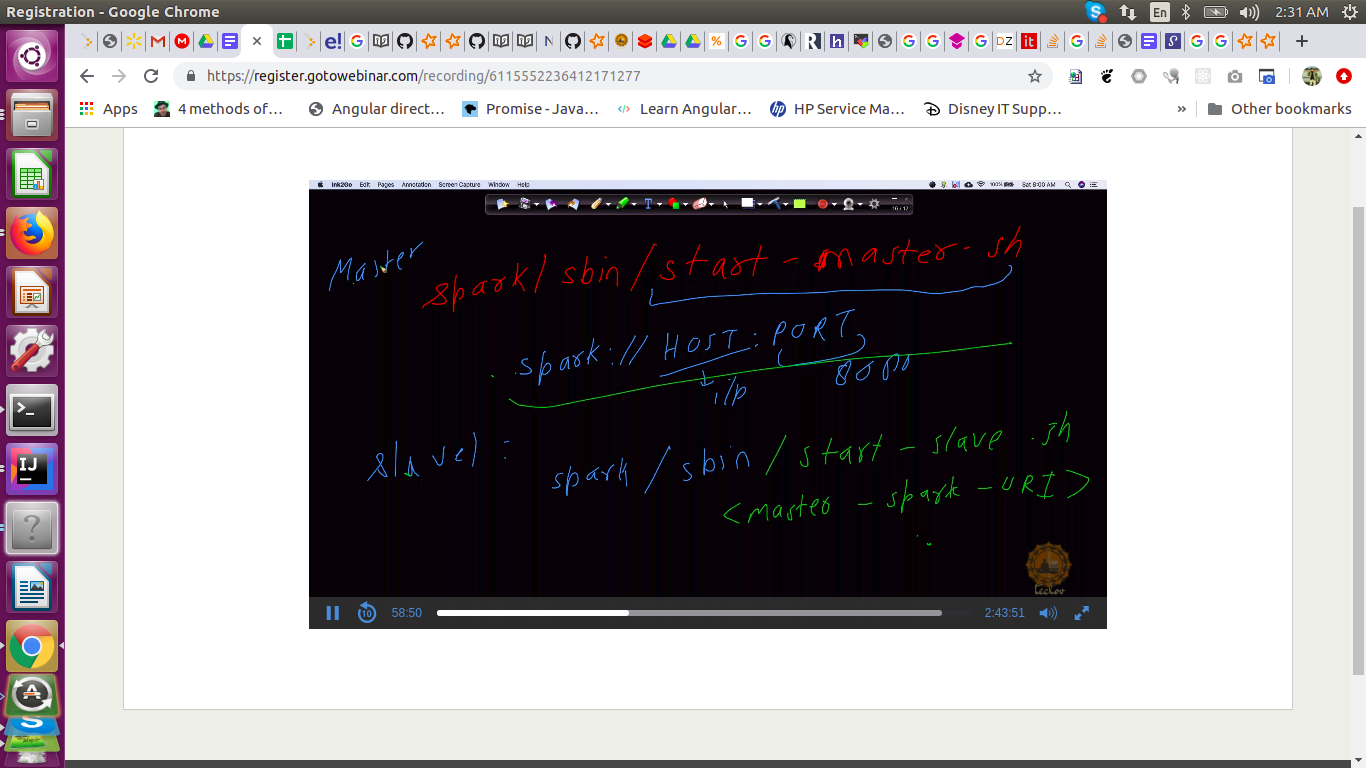 Registration - Google Chrome
En
2:31 AM
https://register.gotowebinar.com/recording/6115552236412171277
Apps
4 methods of...
Angular direct...
Promise - Java...
Learn Angular...
HP Service Ma...
Disney IT Supp...
»
Other bookmarks
Ink2Go Edit Pages Annotation Screen Capture Window Help
100%
Sat 8:00 AM
Master
spark/sbin/start-master.sh
spark://HOST:PORT
i/p
slave1:
spark/sbin/start-slave.sh
<master-spark-URI>
58:50
2:43:51